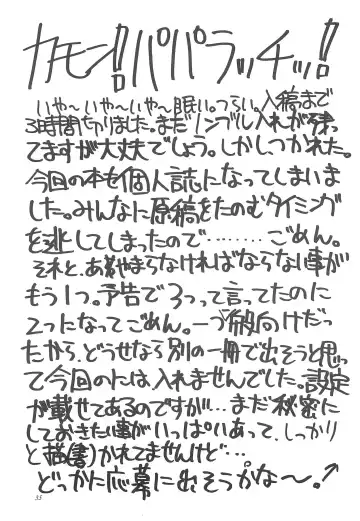 カモン!パパラッチッ!
いや〜いや〜いや〜眠い。つらい。入稿まで
3時間切りました。まだノンブル入れが残っ
てますが大丈夫でしょう。しかしつかれた。
今回の本も個人誌になってしまいま
した。みんなに原稿をたのむタイミング
を逃してしまったので………ごめん。
それと、あやまらなければならない事が
もう1つ。予告で3つって言ってたのに
2つになってごめん。一つ般向けだっ
たから、どうせなら別の一冊で出そうと思っ
て今回のには入れませんでした。設定
が載せてあるのですが…まだ秘密に
しておきたい事がいっぱいあって、しっかり
と描(書)かれてませんけど…
どっかに応募に出そうかな〜。↗
35